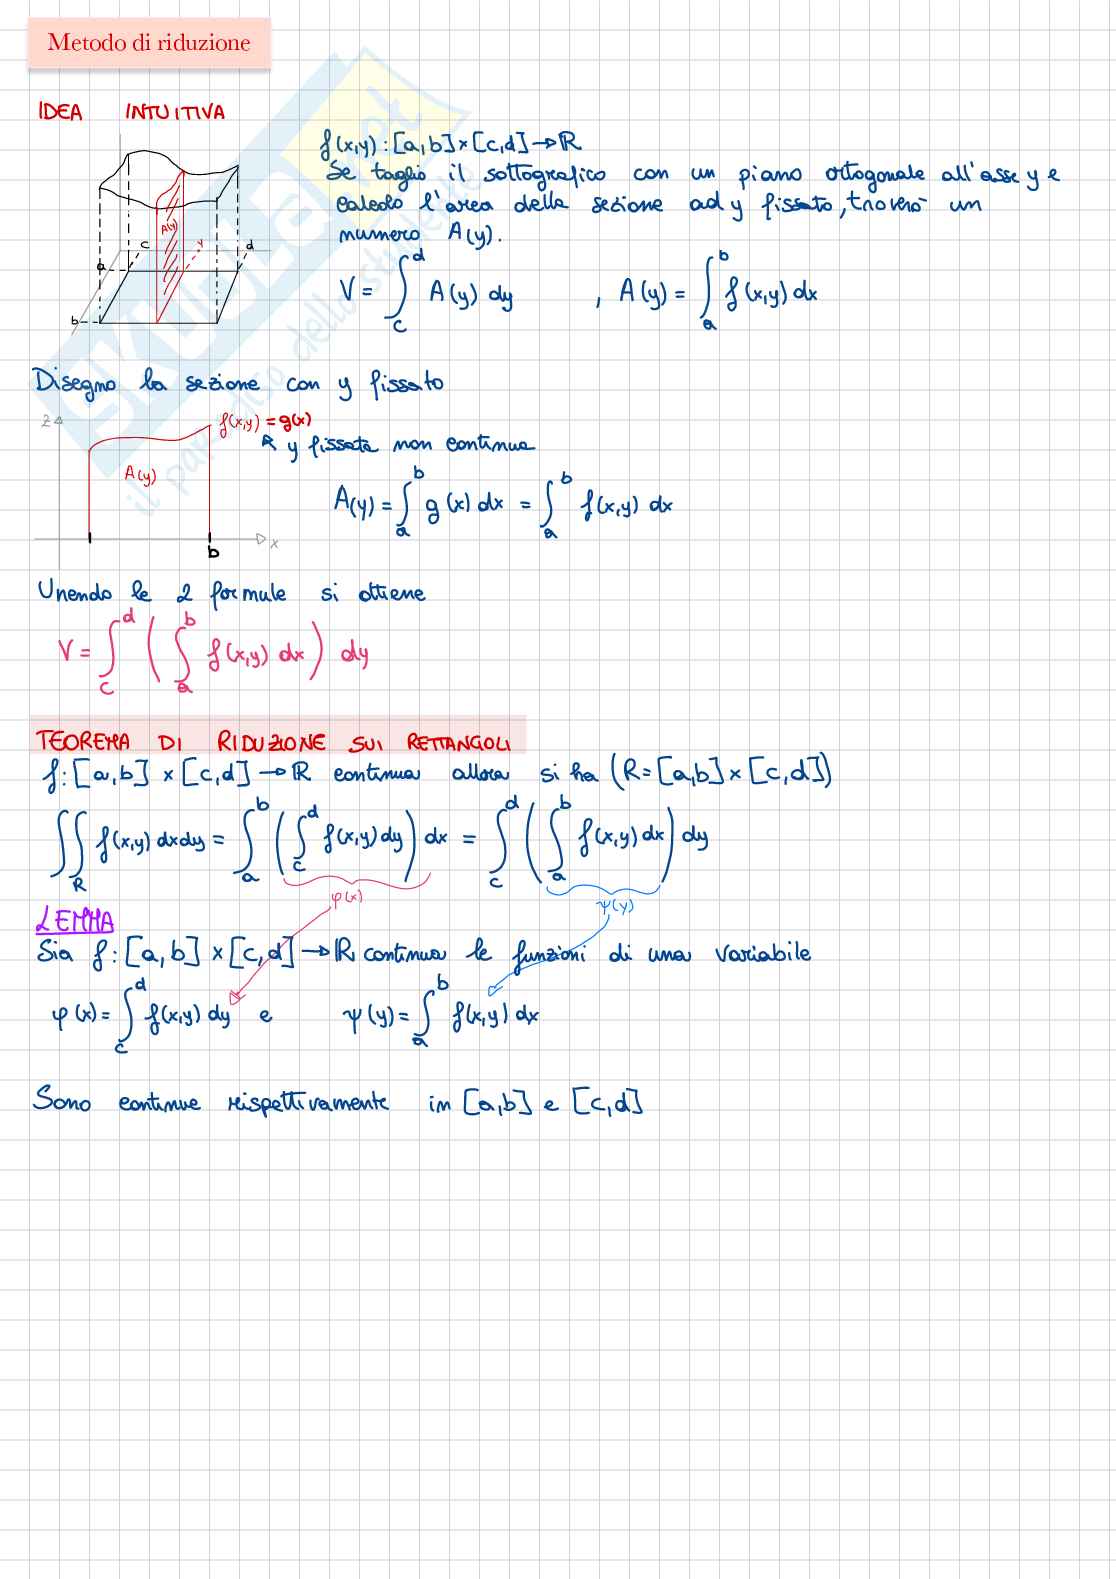 Metodo di riduzione
IDEA INTUITIVA
f(x,y) : [a,b]×[c,d]→ℝ
Se taglio il sottografico con un piano ortogonale all'asse y e
calcolo l'area della sezione ad y fissato, troverò un
numero A(y).
A(y)
c y d
a
b
V = ∫_c^d A(y) dy , A(y) = ∫_a^b f(x,y) dx
Disegno la sezione con y fissato
z
f(x,y) = g(x)
y fissata non continua
A(y)
b x
A(y) = ∫_a^b g(x) dx = ∫_a^b f(x,y) dx
Unendo le 2 formule si ottiene
V = ∫_c^d ( ∫_a^b f(x,y) dx ) dy
TEOREMA DI RIDUZIONE SUI RETTANGOLI
f: [a,b] × [c,d] → ℝ continua allora si ha (R = [a,b] × [c,d])
∬_R f(x,y) dxdy = ∫_a^b ( ∫_c^d f(x,y) dy ) dx = ∫_c^d ( ∫_a^b f(x,y) dx ) dy
φ(x) ψ(y)
LEMMA
Sia f: [a,b] × [c,d] → ℝ continua le funzioni di una variabile
φ(x) = ∫_c^d f(x,y) dy e ψ(y) = ∫_a^b f(x,y) dx
Sono continue rispettivamente in [a,b] e [c,d]
SKUOLA.net
il paradiso dello studente